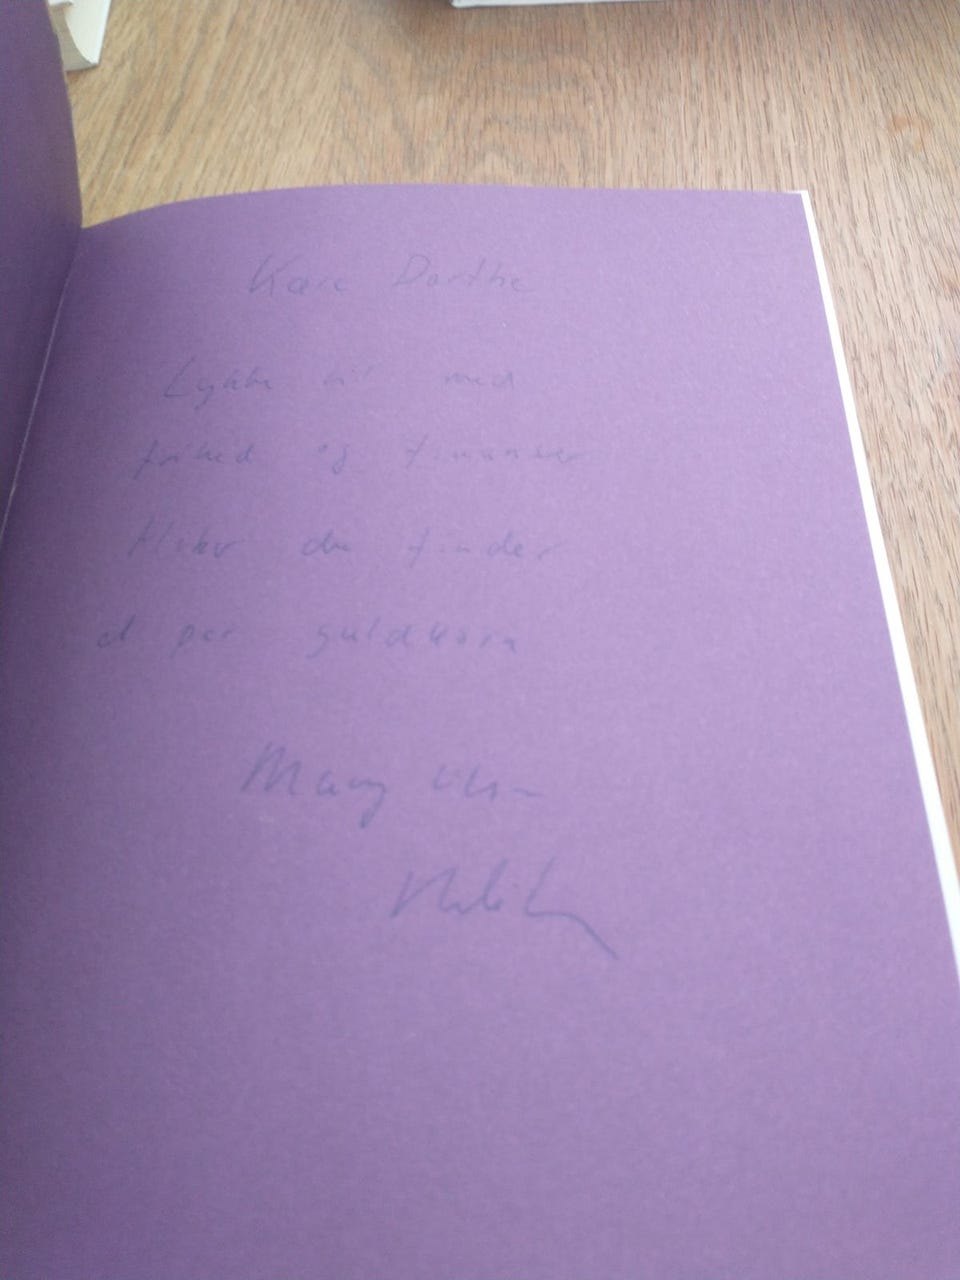 Kære Dorthe
Lykke til med
frihed og finanser
Håber du finder
et par guldkorn
Mang